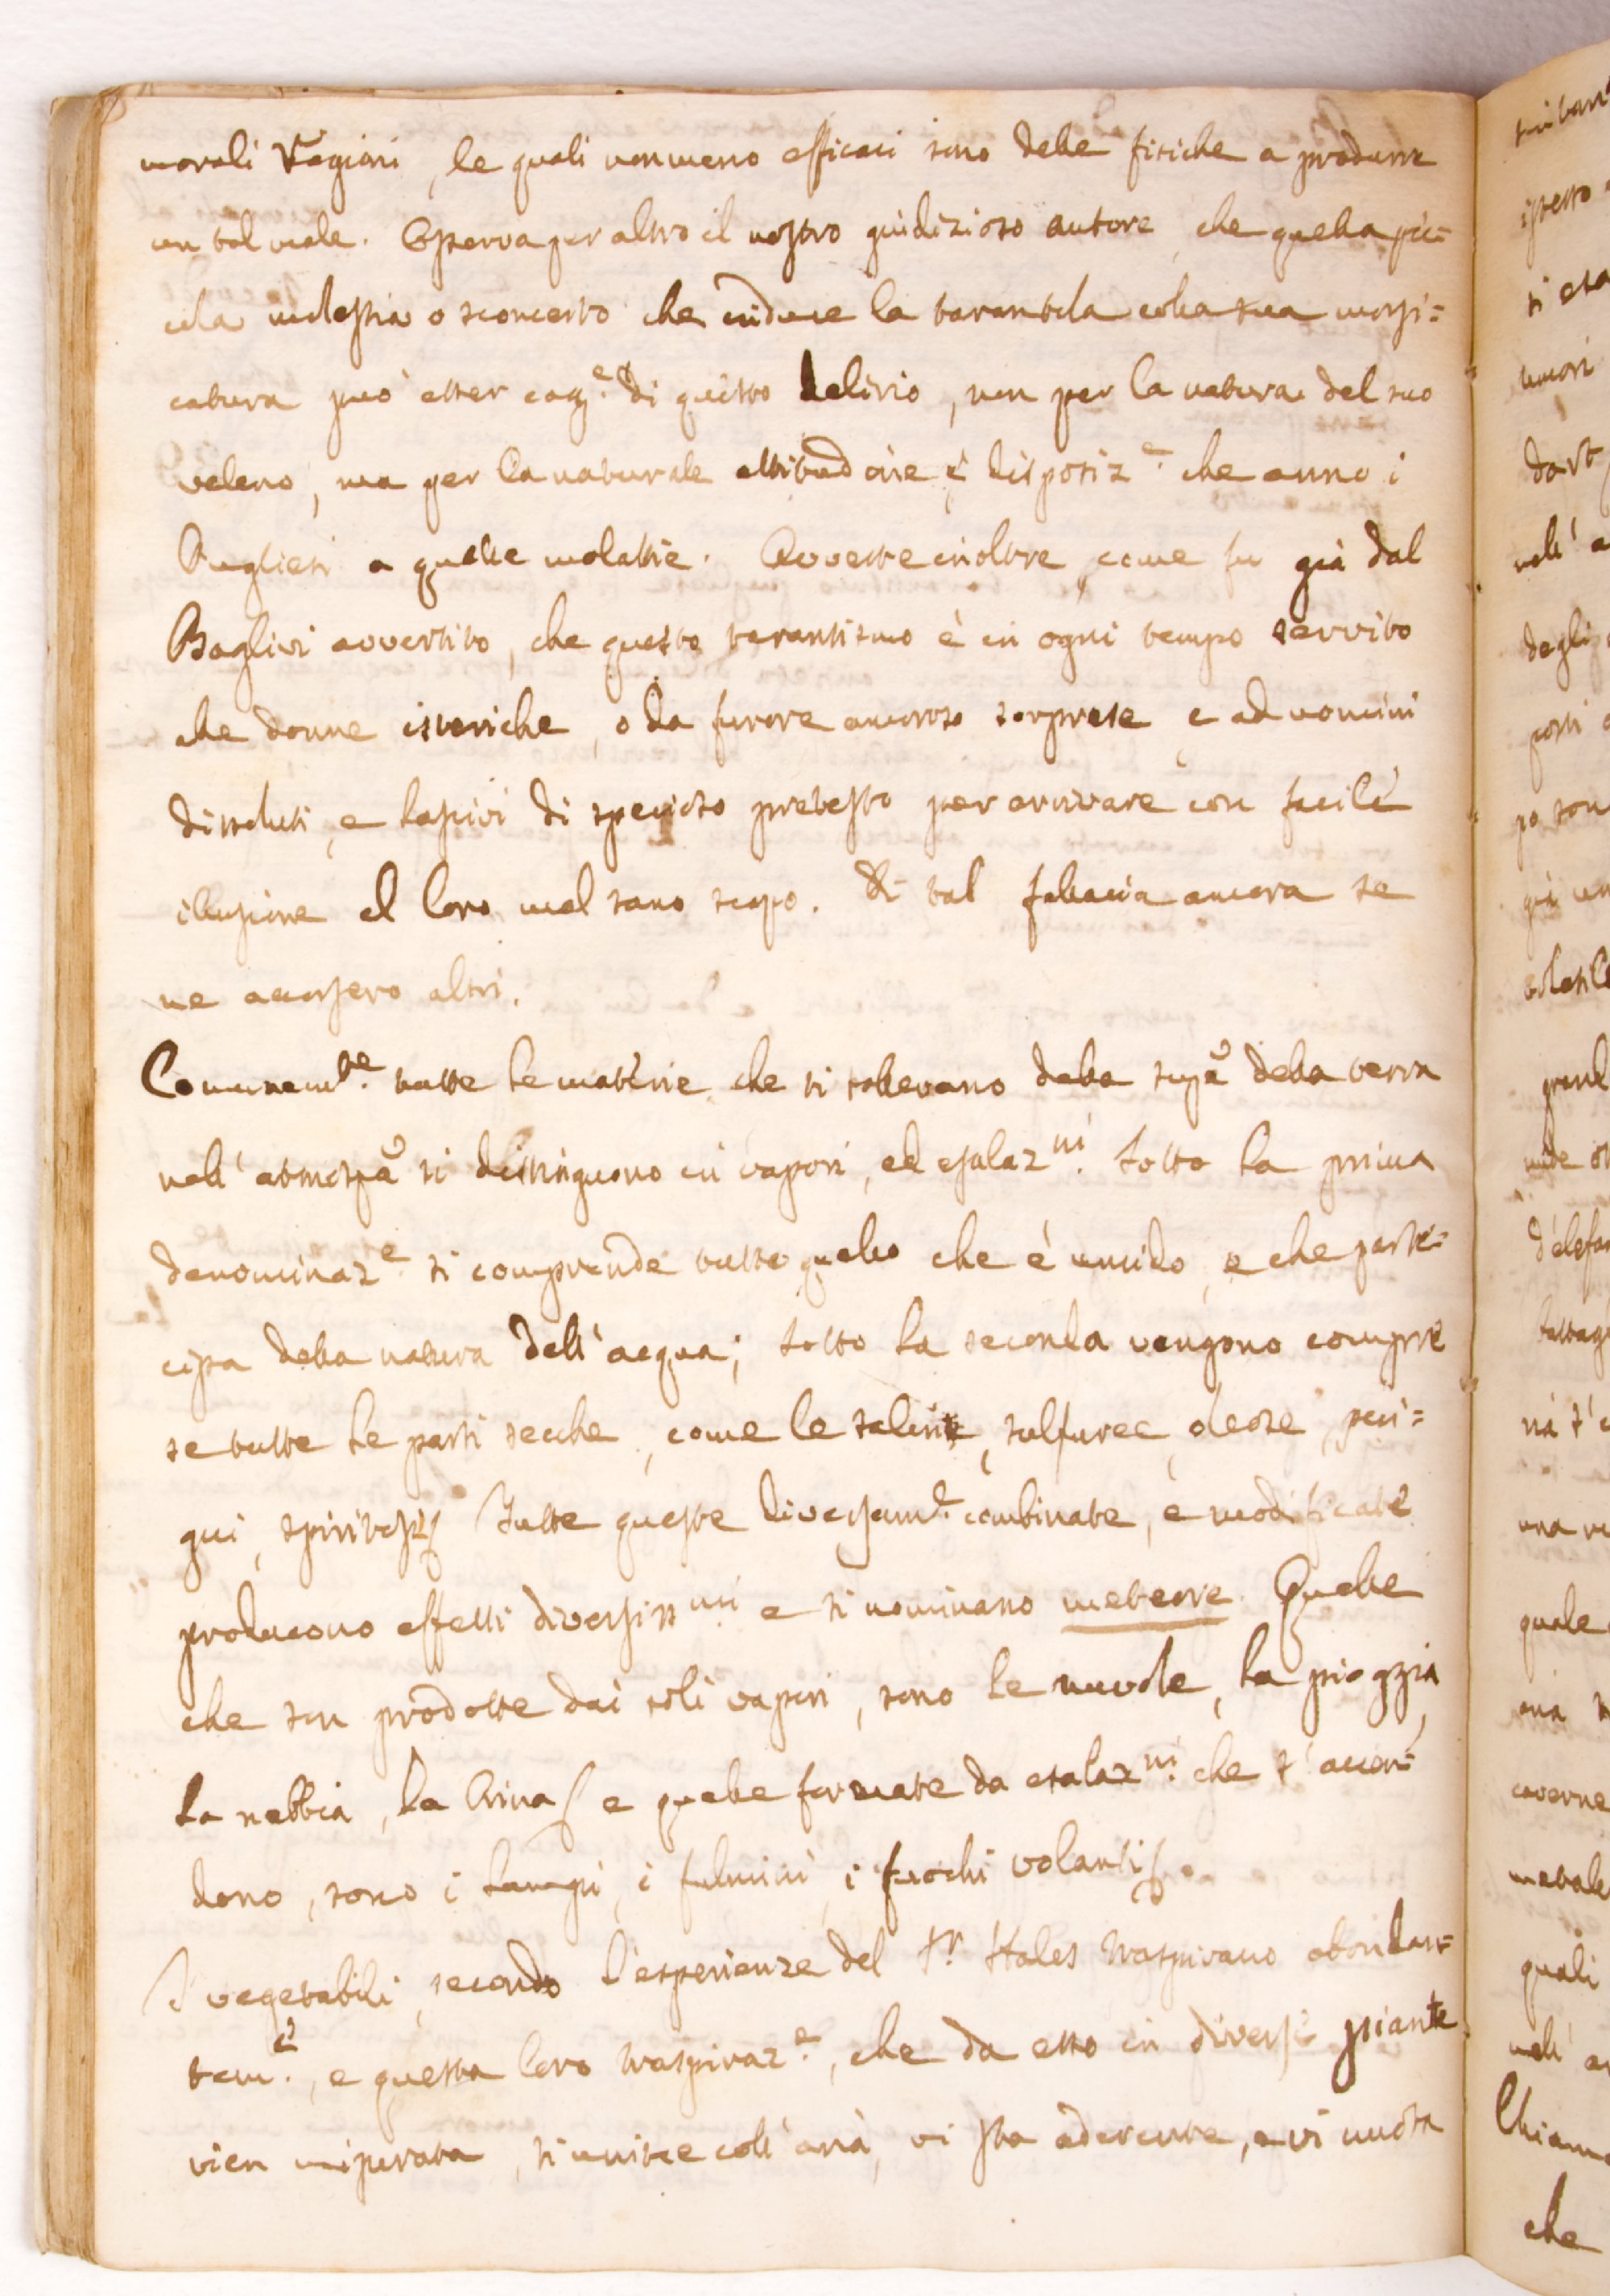 morali Ragioni, le quali nonmeno efficaci sono delle fisiche a produrre
un tal male. Osserva per altro il nostro giudizioso autore, che quella pic=
cola molestia o sconcerto che induce la tarantola colla sua morsi=
catura può esser cag.e di questo delirio, non per la natura del suo
veleno, ma per la naturale attitudine e disposiz.e che anno i
Pugliesi a quelle malattie. Avverte inoltre, come fu già dal
Baglivi avvertito, che questo tarantismo è in ogni tempo servito
che donne isteriche, o da furore amoroso sorprese, e ad uomini
dissoluti, e lascivi di specioso pretesto per arrivare con facile
illusione al loro mal sano scopo. Di tal fallacia ancora se
ne accorsero altri.
Comunem.te tutte le materie che si sollevano dalla supa della terra
nell'atmosfa si distinguono in vapori, ed esalaz.ni. Sotto la prima
denominaz.e si comprende tutto quello che è umido, e che parte=
cipa della natura dell'acqua; sotto la seconda vengono compre
se tutte le parti secche, come le saline, sulfuree, oleose, pin=
gui, spiritose Tutte queste diversam.e combinate, e modificate
producono effetti diversiss.mi e si nominano meteore. Quelle
che son prodotte dai soli vapori, sono le nuvole, la pioggia,
la nebbia, la brina e quelle formate da esalaz.ni che s'accen=
dono, sono i lampi, i fulmini, i fuochi volanti
I vegetabili, secondo l'esperienze del Sr. Hales traspirano abondan=
tem.e, e questa loro traspiraz.e, che da esso in diverse piante
vien misurata, si unisce coll'aria, vi sta aderente, e vi nuota